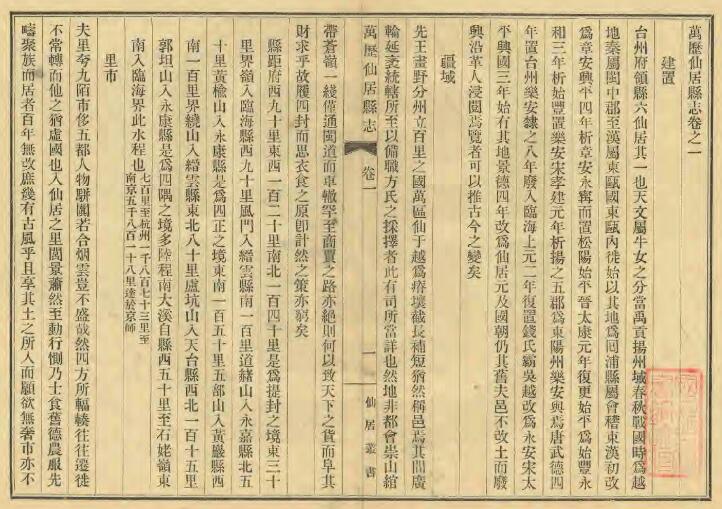 萬歷仙居縣志卷之一
建置
台州府領縣六仙居其一也天文屬牛女之分當禹貢揚州域春秋戰國時爲越
地秦屬閩中郡至漢屬東甌國東甌內徙始以其地爲回浦縣屬會稽東漢初改
爲章安興平四年析章安永寧而置松陽始平晉太康元年復更始平爲始豐永
和三年析始豐置樂安宋孝建元年析揚之五郡爲東陽州樂安與焉唐武德四
年置台州樂安隸之八年廢入臨海上元二年復置錢氏霸吳越改爲永安宋太
平興國三年始有其地景德四年改爲仙居元及國朝仍其舊夫邑不改土而廢
興沿革人浸閱焉覽者可以推古今之變矣
疆域
先王畫野分州立百里之國萬區仙于越爲瘠壤截長補短猶然稱邑焉其間廣
輪延袤統轄所至以備職方氏之採擇者此有司所當詳也然地非都會崇山綰
萬歷仙居縣志
卷一
一
仙居叢書
帶蒼嶺一綫僅通閩道而車轍罕至商賈之路亦絕則何以致天下之貨而阜其
財求乎故履四封而思衣食之原卽計然之策亦窮矣
縣距府西九十里東西一百二十里南北一百四十里是爲提封之境東三十
里界嶺入臨海縣西九十里風門入縉雲縣南一百里道緒山入永嘉縣北五
十里黃榆山入永康縣是爲四正之境東南一百五十里五部山入黃巖縣西
南一百里界繞山入縉雲縣東北八十里盧坑山入天台縣西北一百十五里
郭坦山入永康縣是爲四隅之境多陸程南大溪自縣西五十里至石姥嶺東
南入臨海界此水程也七百里至杭州一千八百七十三里至
南京五千八百一十八里達於京師
里市
夫里夸九陌市侈五都人物駢闐若合烟雲豈不盛哉然四方所輻輳往往遷徙
不常轉而他之猶虛國也入仙居之里閈景蕭然至動行惻乃士食舊德農服先
疇聚族而居者百年無改庶幾有古風乎且享其土之所入而願欲無奢市亦不